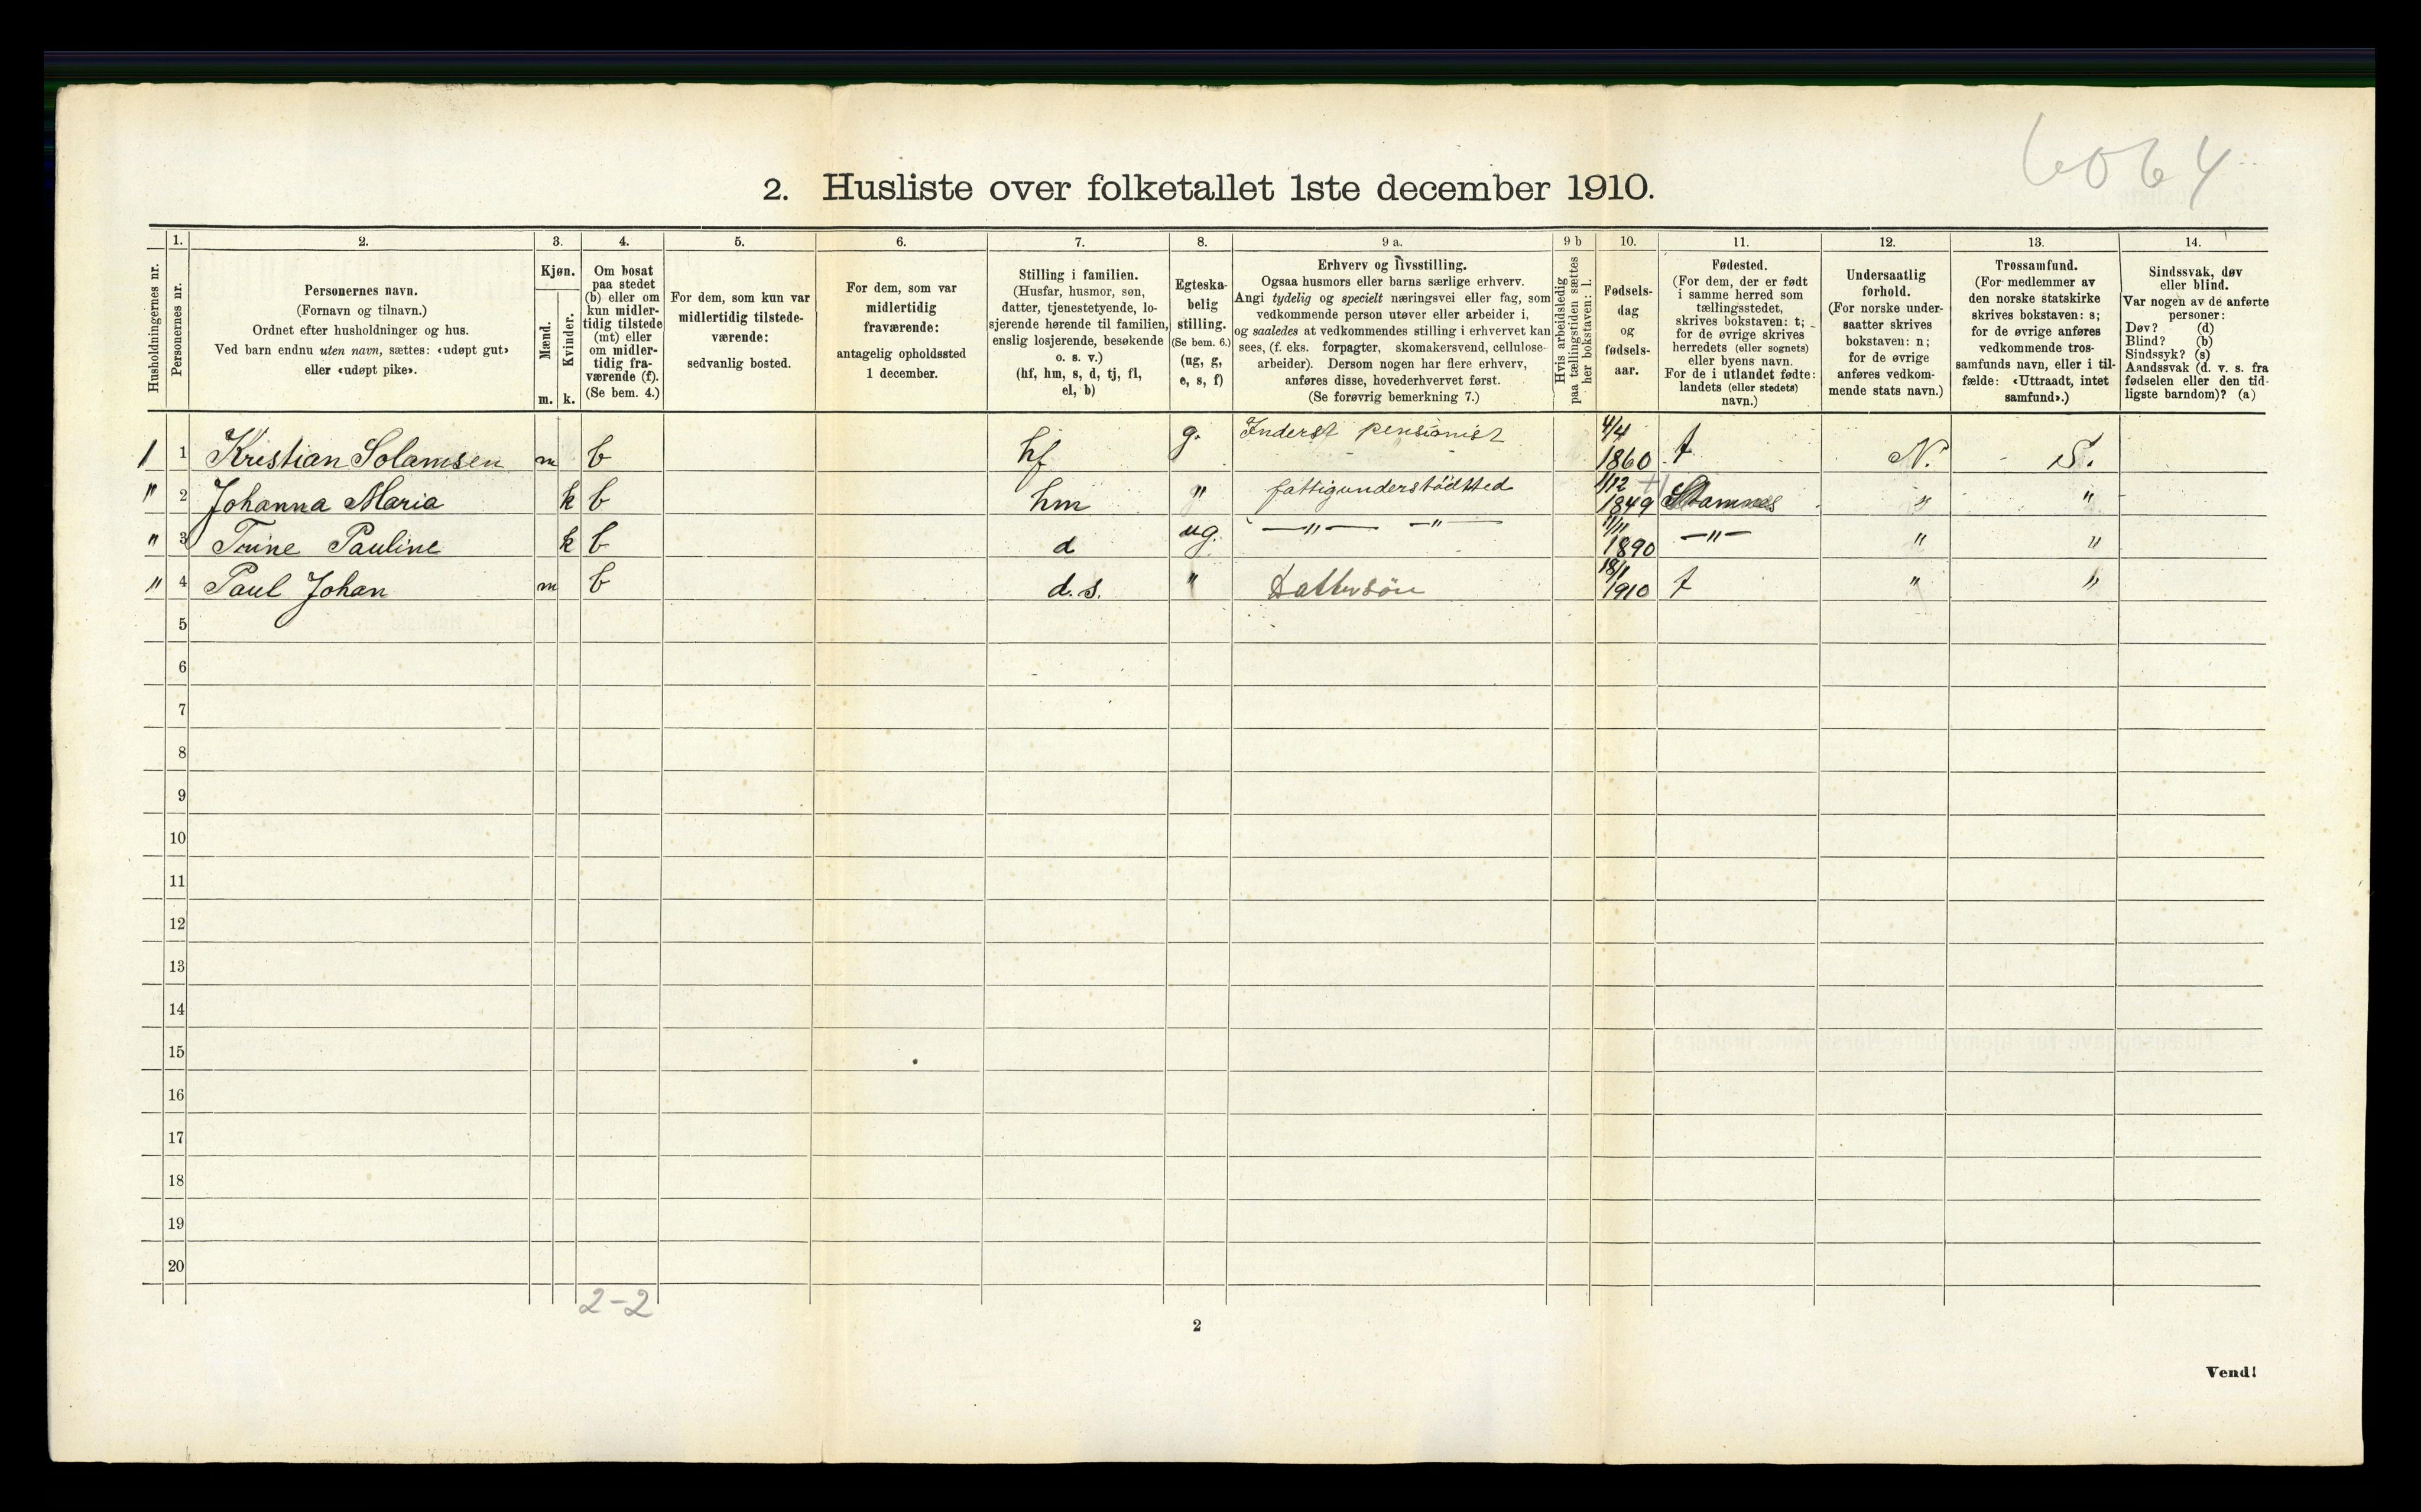 6064
2. Husliste over folketallet 1ste december 1910.
Husholdningernes nr.
1.
Personernes nr.
2.
Personernes navn.
(Fornavn og tilnavn.)
Ordnet efter husholdninger og hus.
Ved barn endnu uten navn, sættes: «udøpt gut»
eller «udøpt pike».
3.
Kjøn.
Mænd.
Kvinder.
m. k.
4.
Om bosat
paa stedet
(b) eller om
kun midler-
tidig tilstede
(mt) eller
om midler-
tidig fra-
værende (f).
(Se bem. 4.)
5.
For dem, som kun var
midlertidig tilstede-
værende:
sedvanlig bosted.
6.
For dem, som var
midlertidig
fraværende:
antagelig opholdssted
1 december.
7.
Stilling i familien.
(Husfar, husmor, søn,
datter, tjenestetyende, lo-
sjerende hørende til familien,
enslig losjerende, besøkende
o. s. v.)
(hf, hm, s, d, tj, fl,
el, b)
8.
Egteska-
belig
stilling.
(Se bem. 6.)
(ug, g,
e, s, f)
9 a.
Erhverv og livsstilling.
Ogsaa husmors eller barns særlige erhverv.
Angi tydelig og specielt næringsvei eller fag, som
vedkommende person utøver eller arbeider i,
og saaledes at vedkommendes stilling i erhvervet kan
sees, (f. eks. forpagter, skomakersvend, cellulose-
arbeider). Dersom nogen har flere erhverv,
anføres disse, hovederhvervet først.
(Se forøvrig bemerkning 7.)
9 b
Hvis arbeidsledig
paa tællingstiden sættes
her bokstaven: l.
10.
Fødsels-
dag
og
fødsels-
aar.
11.
Fødested.
(For dem, der er født
i samme herred som
tællingsstedet,
skrives bokstaven: t;
for de øvrige skrives
herredets (eller sognets)
eller byens navn.
For de i utlandet fødte:
landets (eller stedets)
navn.)
12.
Undersaatlig
forhold.
(For norske under-
saatter skrives
bokstaven: n;
for de øvrige
anføres vedkom-
mende stats navn.)
13.
Trossamfund.
(For medlemmer av
den norske statskirke
skrives bokstaven: s;
for de øvrige anføres
vedkommende tros-
samfunds navn, eller i til-
fælde: «Uttraadt, intet
samfund».)
14.
Sindssvak, døv
eller blind.
Var nogen av de anførte
personer:
Døv? (d)
Blind? (b)
Sindssyk? (s)
Aandssvak (d. v. s. fra
fødselen eller den tid-
ligste barndom)? (a)
1 1 Kristian Solamsen m b hf g. Inderst pensionist 4/4 1860 t N. S.
" 2 Johanna Maria k b hm " fattigunderstödtted 1/12 1849 Stamnes " "
" 3 Trine Pauline k b d ug. —"— —"— 11/11 1890 —"— " "
" 4 Paul Johan m b d.s. " Dattersön 18/1 1910 t " "
5
6
7
8
9
10
11
12
13
14
15
16
17
18
19
20
2-2
2
Vend!